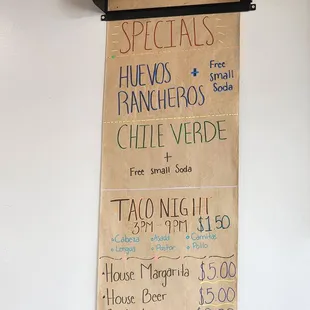 SPECIALS
HUEVOS + Free
RANCHEROS small
Soda
CHILE VERDE
+
Free small Soda
TACO NIGHT
3PM - 9PM $1.50
• Cabeza • Carnitas
• Lengua • Pastor • Pollo
• House Margarita $5.00
• House Beer $5.00